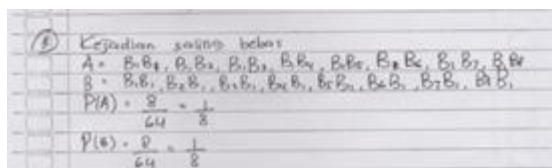 ⑧ Kejadian saling bebas
A = B₁B₁, B₁B₂, B₁B₃, B₁B₄, B₁B₅, B₁B₆, B₁B₇, B₁B₈
B = B₁B₁, B₂B₁, B₃B₁, B₄B₁, B₅B₁, B₆B₁, B₇B₁, B₈B₁
P(A) = 8/64 = 1/8
P(B) = 8/64 = 1/8